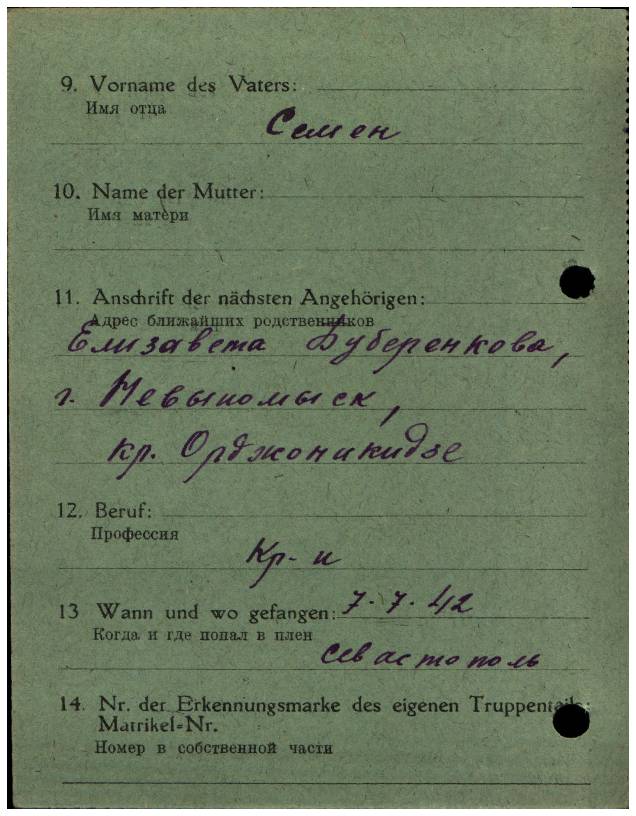 9. Vorname des Vaters:
Имя отца
Семен
10. Name der Mutter:
Имя матери
11. Anschrift der nächsten Angehörigen:
Адрес ближайших родственников
Елизавета Дуберенкова,
г. Невыномыск,
кр. Орджоникидзе
12. Beruf:
Профессия
Кр-н
13 Wann und wo gefangen: 7.7.42
Когда и где попал в плен
Севастополь
14. Nr. der Erkennungsmarke des eigenen Truppenteils:
Matrikel-Nr.
Номер в собственной части